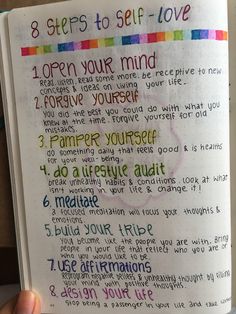 8 Steps to Self-Love
1. OPEN YOUR MIND
Read, listen, read some more. be receptive to new
concepts & ideas on living your life.
2. FORGIVE YOURSELF
You did the best you could do with what you
knew at the time. Forgive yourself for old
mistakes.
3. PAMPER YOURSELF
do something daily that feels good & is healthy
for your well-being.
4. do A lifestyle audit
break unhealthy habits & conditions. Look at what
isn't working in your life & change it!
6. meditate
a focused meditation will focus your thoughts &
emotions.
5. build your tribe
You become like the people you are with. Bring
people in your life that reflect who you are or
who you would like to be.
7. use affirmations
Reprogram negative beliefs & unhealthy thought by filling
your mind with positive thoughts.
8. design your life
Stop being a passenger in your life and take